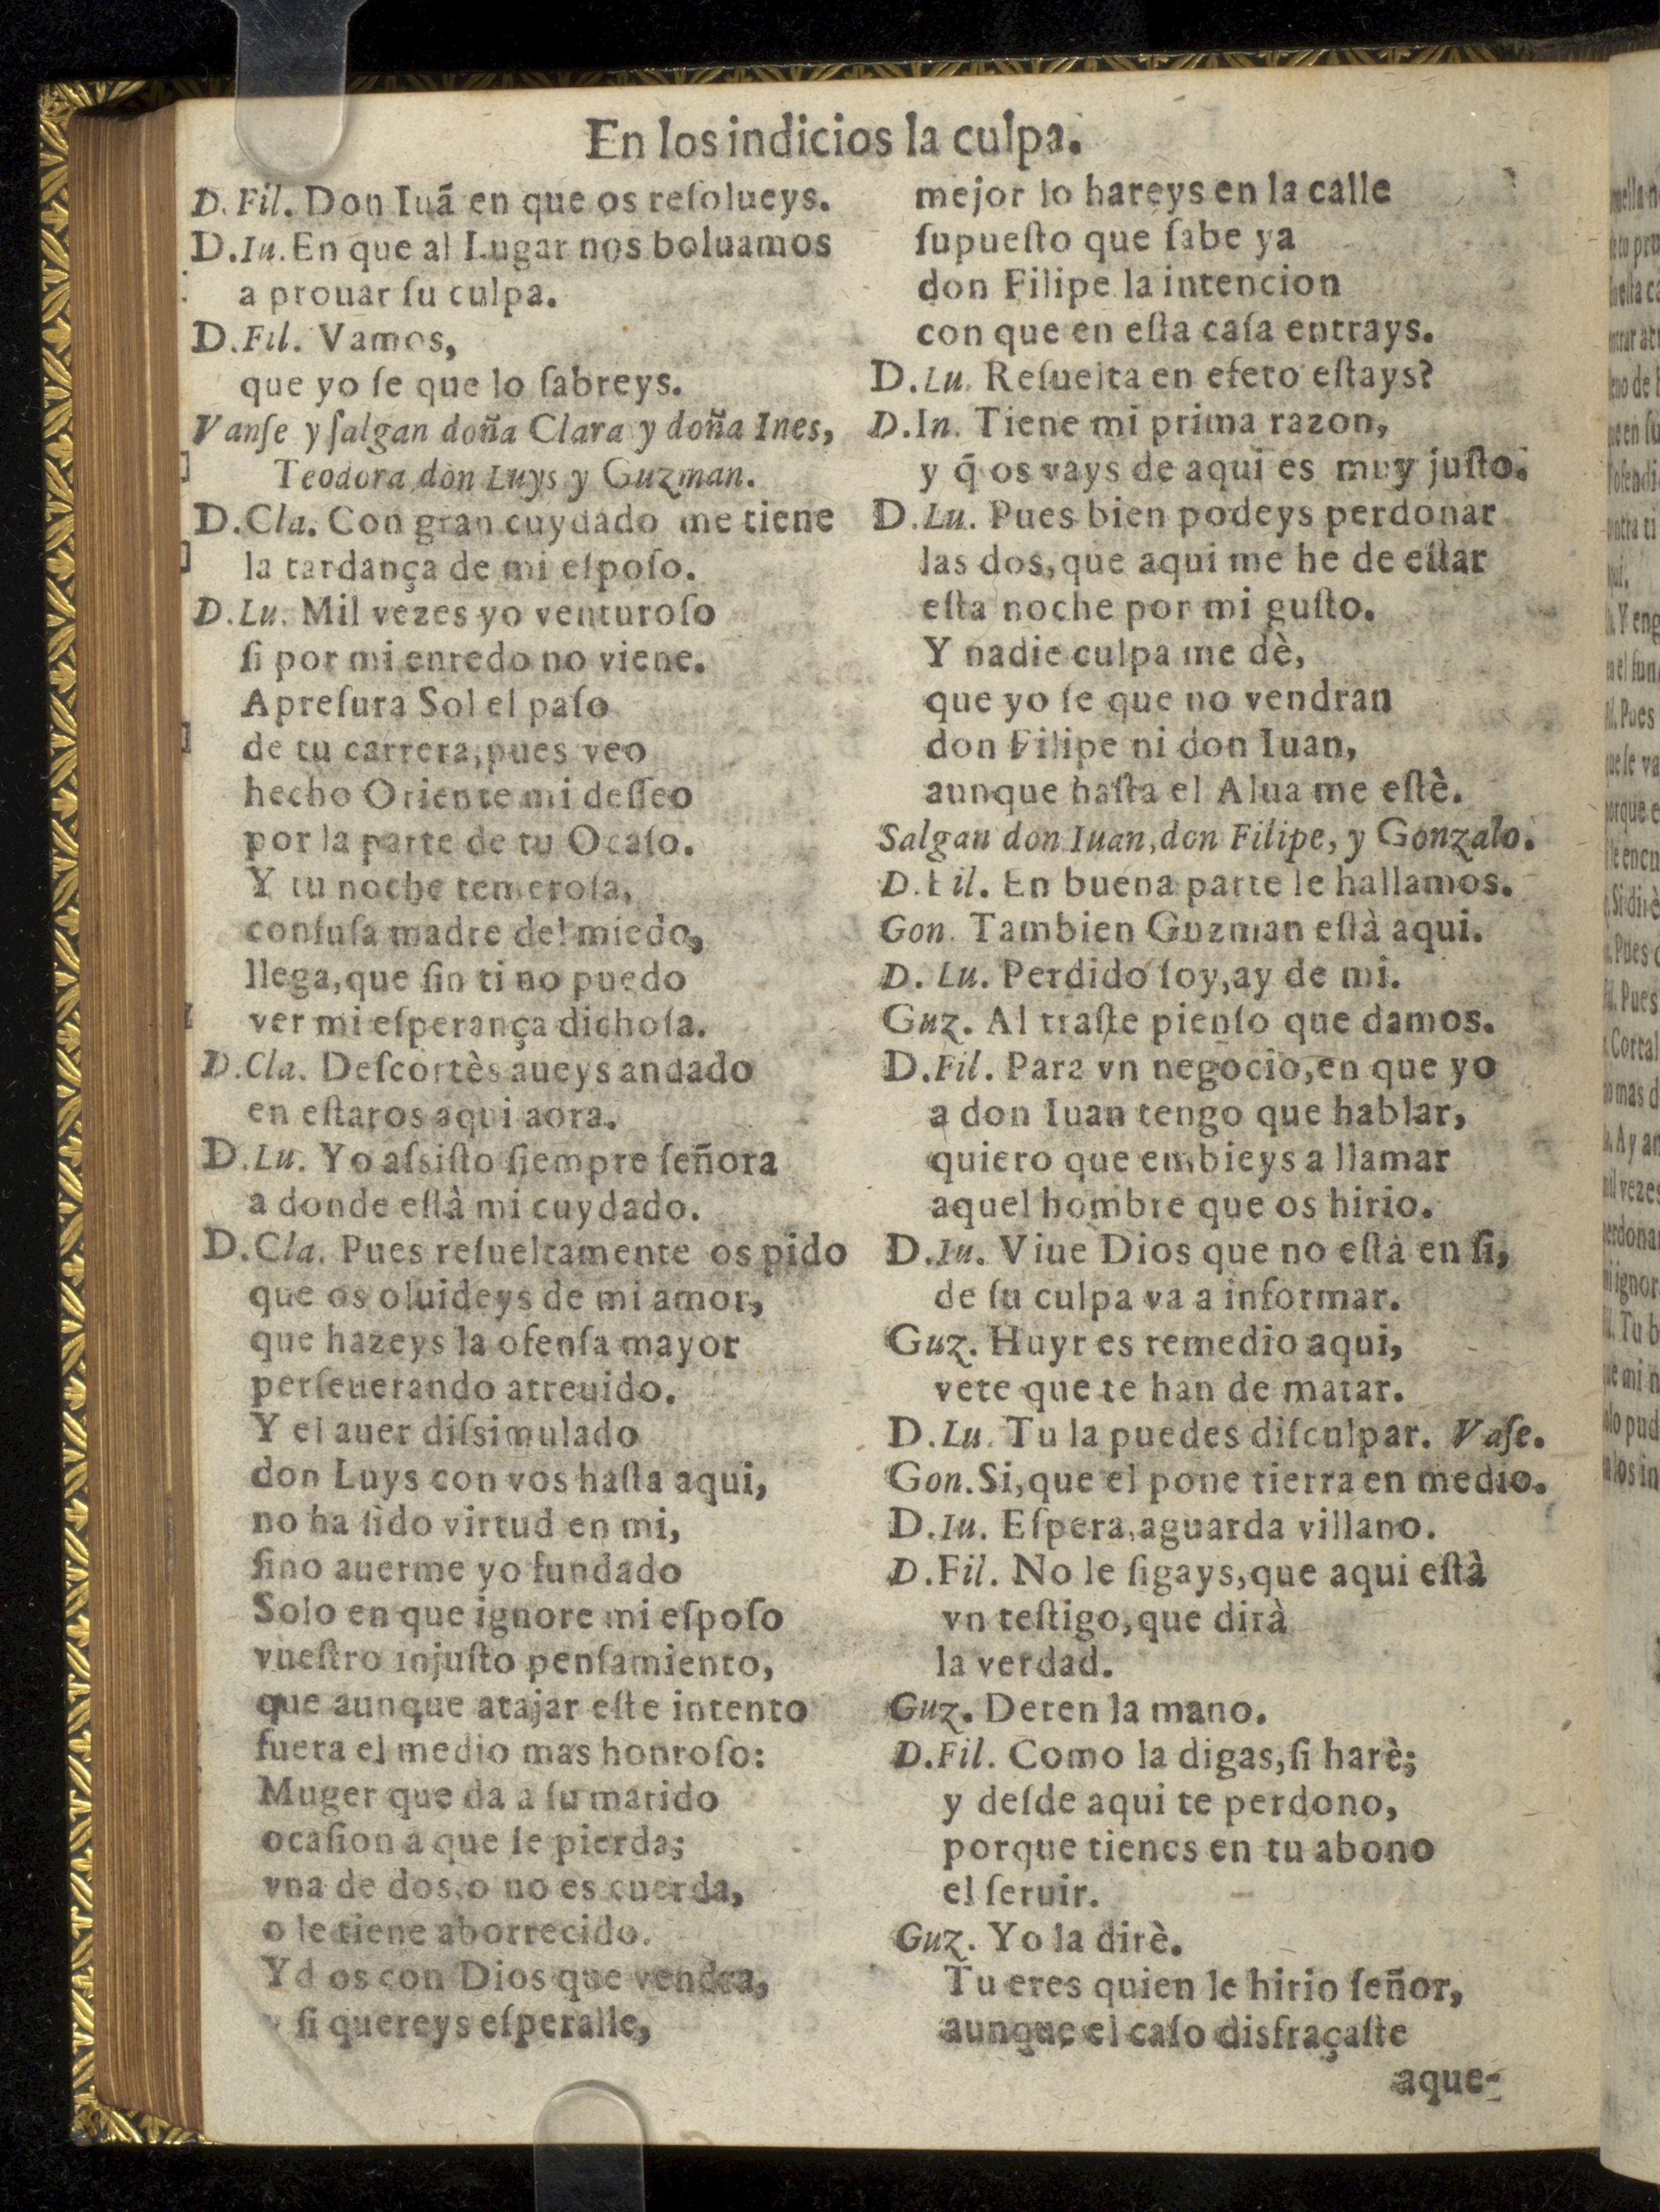 En los indicios la culpa.
D. Fil. Don Iuã en que os reſolueys.
D. Iu. En que al Lugar nos boluamos
a prouar ſu culpa.
D. Fil. Vamos,
que yo ſe que lo ſabreys.
Vanſe y ſalgan doña Clara y doña Ines,
Teodora, don Luys y Guzman.
D. Cla. Con gran cuydado me tiene
la tardança de mi eſpoſo.
D. Lu. Mil vezes yo venturoſo
ſi por mi enredo no viene.
Apreſura Sol el paſo
de tu carrera, pues veo
hecho Oriente mi deſſeo
por la parte de tu Ocaſo.
Y tu noche temeroſa,
confuſa madre del miedo,
llega, que ſin ti no puedo
ver mi eſperança dichoſa.
D. Cla. Deſcortès aueys andado
en eſtaros aqui aora.
D. Lu. Yo aſsiſto ſiempre ſeñora
a donde eſtà mi cuydado.
D. Cla. Pues reſueltamente os pido
que os oluideys de mi amor,
que hazeys la ofenſa mayor
perſeuerando atreuido.
Y el auer diſsimulado
don Luys con vos haſta aqui,
no ha ſido virtud en mi,
ſino auerme yo fundado
Solo en que ignore mi eſpoſo
vueſtro injuſto penſamiento,
que aunque atajar eſte intento
fuera el medio mas honroſo:
Muger que da a ſu marido
ocaſion a que ſe pierda;
vna de dos, o no es cuerda,
o le tiene aborrecido.
Yd os con Dios que vendra,
y ſi quereys eſperalle,
mejor lo hareys en la calle
ſupueſto que ſabe ya
don Filipe la intencion
con que en eſta caſa entrays.
D. Lu. Reſuelta en efeto eſtays?
D. In. Tiene mi prima razon,
y q̃ os vays de aqui es muy juſto.
D. Lu. Pues bien podeys perdonar
las dos, que aqui me he de eſtar
eſta noche por mi guſto.
Y nadie culpa me dè,
que yo ſe que no vendran
don Filipe ni don Iuan,
aunque haſta el Alua me eſtè.
Salgan don Iuan, don Filipe, y Gonzalo.
D. Fil. En buena parte le hallamos.
Gon. Tambien Guzman eſtà aqui.
D. Lu. Perdido ſoy, ay de mi.
Guz. Al traſte pienſo que damos.
D. Fil. Para vn negocio, en que yo
a don Iuan tengo que hablar,
quiero que embieys a llamar
aquel hombre que os hirio.
D. Iu. Viue Dios que no eſtà en ſi,
de ſu culpa va a informar.
Guz. Huyr es remedio aqui,
vete que te han de matar.
D. Lu. Tu la puedes diſculpar. Vaſe.
Gon. Si, que el pone tierra en medio.
D. Iu. Eſpera, aguarda villano.
D. Fil. No le ſigays, que aqui eſtà
vn teſtigo, que dirà
la verdad.
Guz. Deten la mano.
D. Fil. Como la digas, ſi harè;
y deſde aqui te perdono,
porque tienes en tu abono
el ſeruir.
Guz. Yo la dirè.
Tu eres quien le hirio ſeñor,
aunque el caſo disfraçaſte
aque-